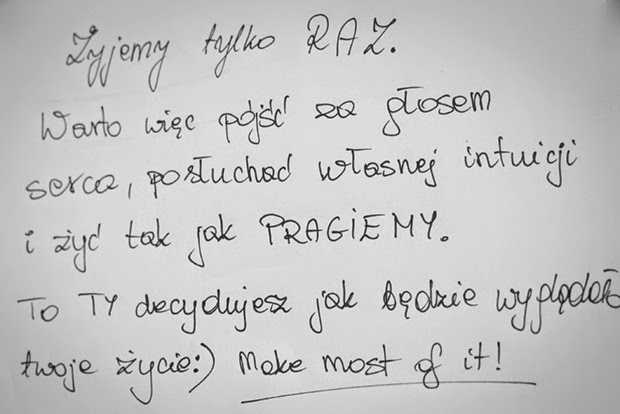 Żyjemy tylko RAZ.
Warto więc pójść za głosem
serca, posłuchać własnej intuicji
i żyć tak jak PRAGIEMY.
To TY decydujesz jak będzie wyglądać
twoje życie:) Make most of it!